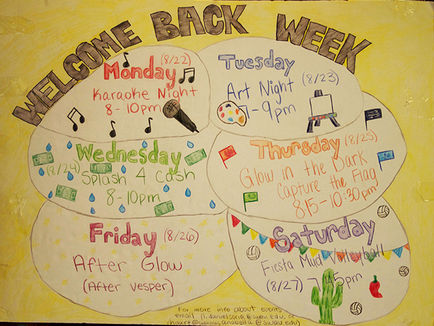 WELCOME BACK WEEK
Monday (8/22)
Karaoke Night
8-10pm
Tuesday
(8/23)
Art Night
7-9pm
Wednesday
(8/24) Splash 4 Cash
8-10pm
Thursday (8/25)
Glow in the Dark
Capture the Flag
8:15-10:30pm
Friday (8/26)
After Glow
(After vesper)
Saturday
Fiesta Mud Volleyball
(8/27)
For more info about events
email